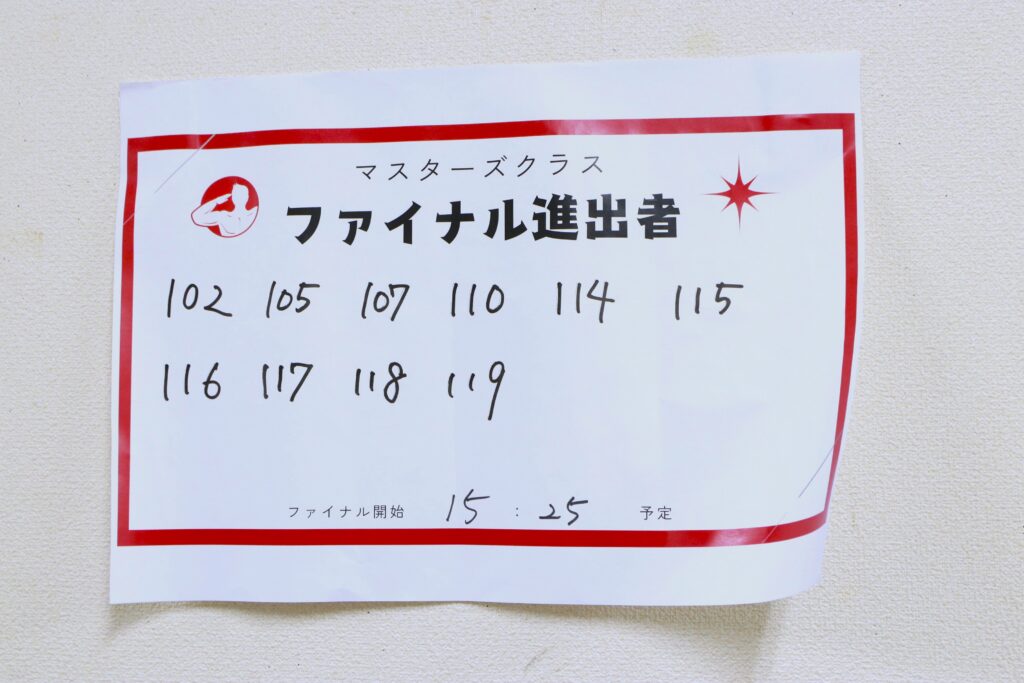 マスターズクラス
ファイナル進出者
102 105 107 110 114 115
116 117 118 119
ファイナル開始 15 : 25 予定